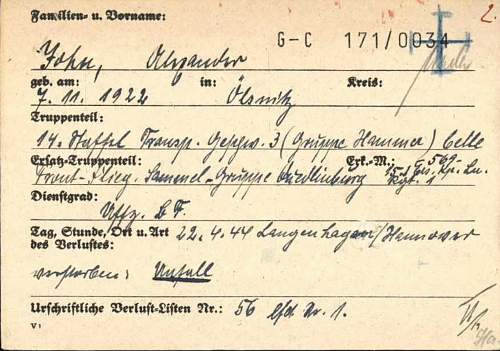 Familien- u. Vorname: 2.
G-C 171/0034
John, Alexander
geb. am: in: Kreis:
7. 11. 1922 Ölsnitz
Truppenteil:
14. Staffel Transp. Geschw. 3 (Gruppe Hammer) Celle
Ersatz-Truppenteil: Erk.-M.: -569-
Front-Flieg. Sammel-Gruppe Quedlinburg
Dienstgrad:
Uffz. B.F.
Tag, Stunde, Ort u. Art 22. 4. 44 Langenhagen/Hannover
des Verlustes:
verstorben: Unfall
Urschriftliche Verlust-Listen Nr.: 56 lfd. Nr. 1.
V1